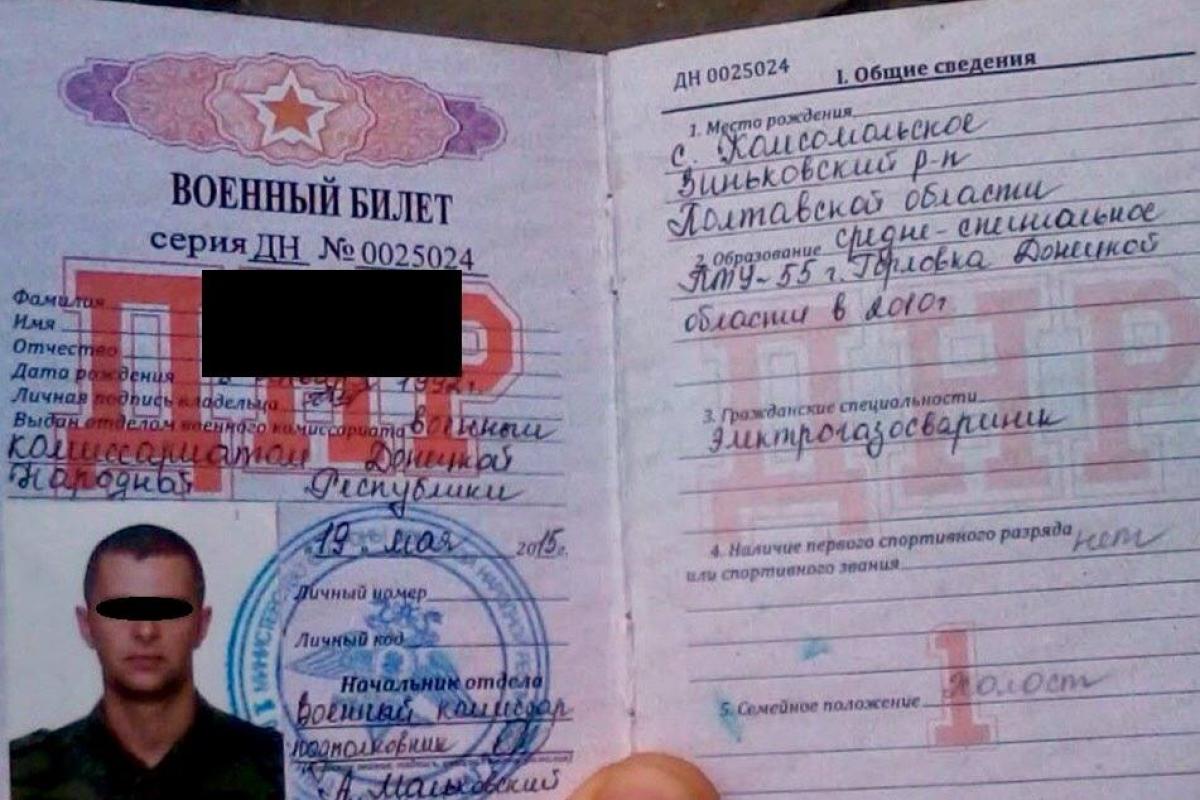 ВОЕННЫЙ БИЛЕТ
серия ДН № 0025024
ДНР
Фамилия
Имя
Отчество
Дата рождения 1992г.
Личная подпись владельца
Выдан отделом военного комиссариата военным
комиссариатом Донецкой
Народной Республики
"19" мая 2015г.
Личный номер
Личный код
Начальник отдела
Военный комиссар
подполковник
А. Мальковский
ДН 0025024
I. Общие сведения
1. Место рождения
с. Комсомольское
Зиньковский р-н
Полтавской области
2. Образование средне-специальное
ПТУ-55 г. Горловка Донецкой
области в 2010г.
ДНР
3. Гражданские специальности
Электрогазосварщик
4. Наличие первого спортивного разряда нет
или спортивного звания
5. Семейное положение холост
1